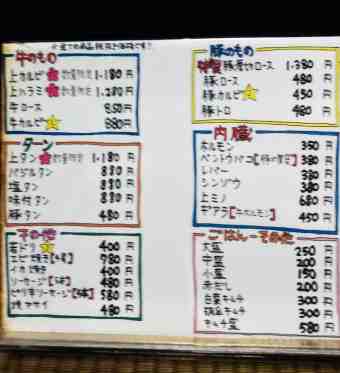 牛のもの
上カルビ 数量限定 1.180円
上ハラミ 数量限定 1.280円
牛ロース 850円
牛カルビ 880円
タン
上タン 数量限定 1.180円
バジルタン 880円
塩タン 880円
味付タン 880円
豚タン 480円
その他
若ドリ 400円
エビ焼き 780円
イカ焼き 400円
ソーセージ 480円
ピリ辛ソーセージ 580円
焼ヤサイ 480円
豚のもの
特製 豚厚切ロース 1.380円
豚ロース 480円
豚カルビ 450円
豚トロ 480円
内臓
ホルモン 350円
380円
レバー 380円
シンゾウ 380円
上ミノ 680円
ギアラ【牛ホルモン】 450円
ごはん・その他
大盛 250円
中盛 200円
小盛 150円
赤だし 200円
白菜キムチ 300円
胡瓜キムチ 300円
キムチ盛 580円